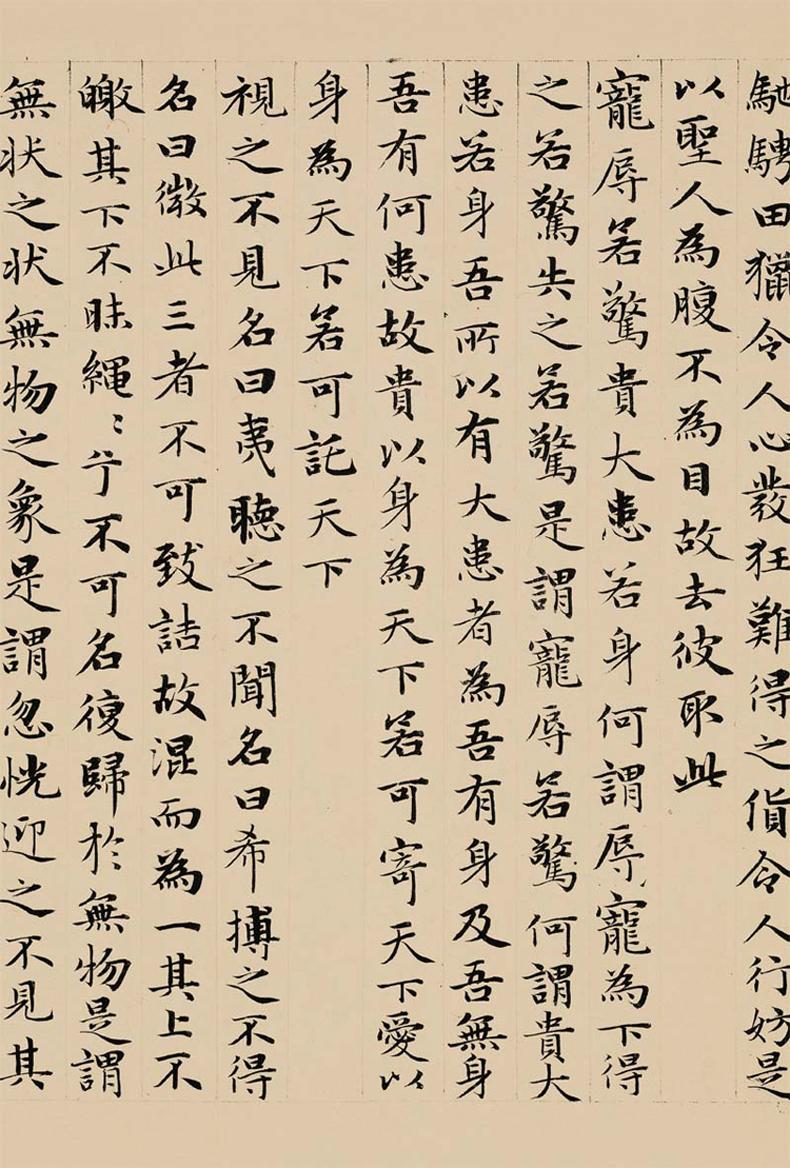 馳騁田獵令人心發狂難得之貨令人行妨是
以聖人為腹不為目故去彼取此
寵辱若驚貴大患若身何謂辱寵為下得
之若驚失之若驚是謂寵辱若驚何謂貴大
患若身吾所以有大患者為吾有身及吾無身
吾有何患故貴以身為天下若可寄天下愛以
身為天下若可託天下
視之不見名曰夷聽之不聞名曰希摶之不得
名曰微此三者不可致詰故混而為一其上不
皦其下不昧繩〻兮不可名復歸於無物是謂
無狀之狀無物之象是謂忽恍迎之不見其